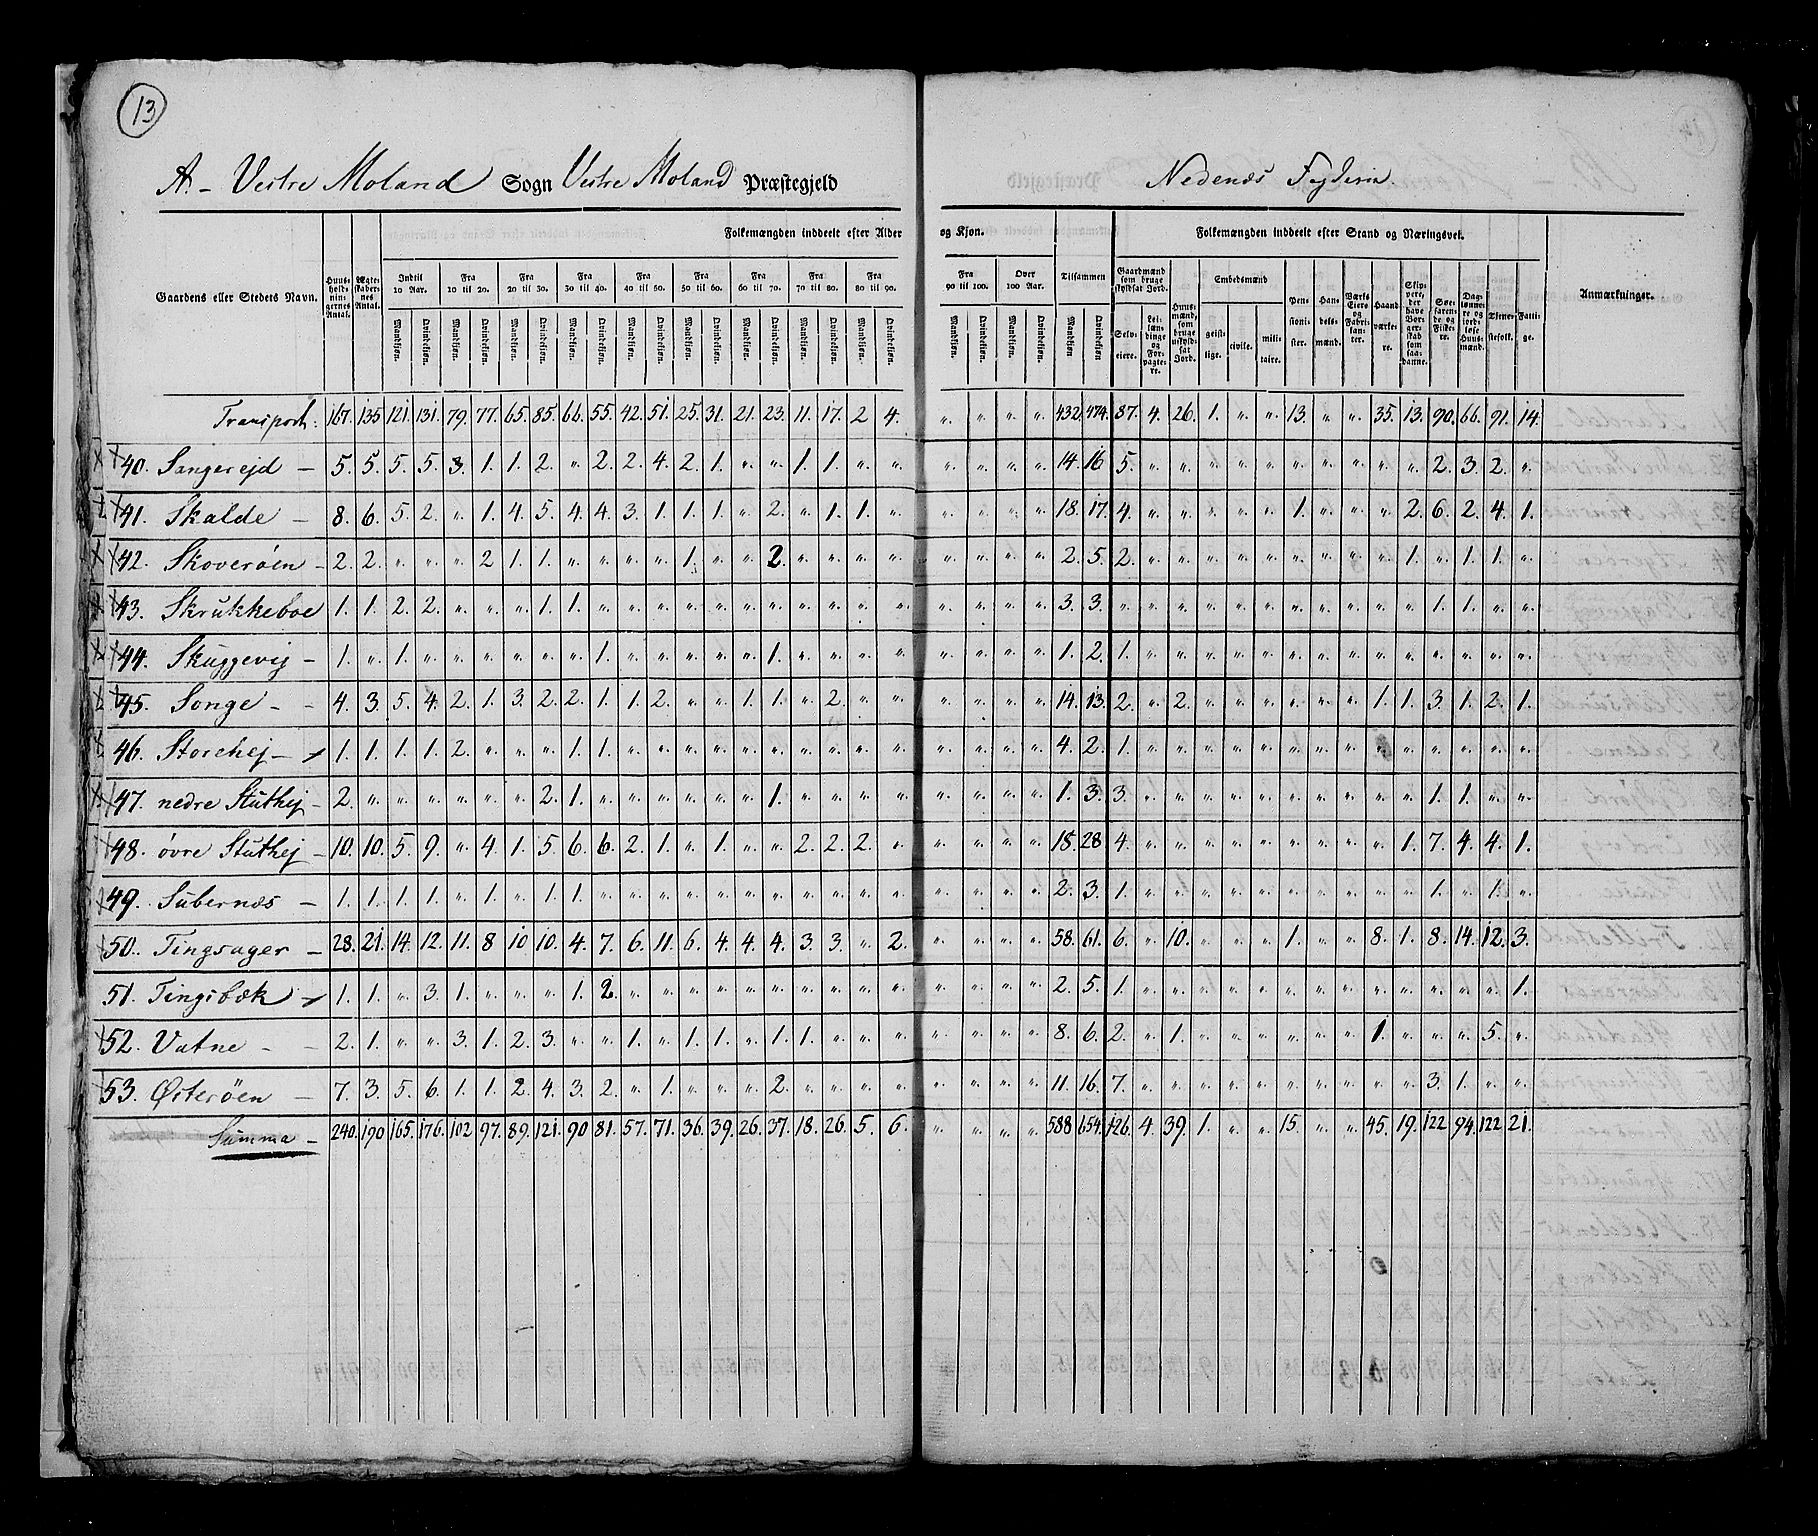 13
A. - Vestre Moland Sogn Vestre Moland Præstegjeld Nedenæs Fogderie.
Folkemængden inddeelt efter Alder og Kjøn. Folkemængden inddeelt efter Stand og Næringsvei.
Gaardens eller Stedets Navn. Huusholdningernes Antal. Ægteskabernes Antal. Indtil 10 Aar. Fra 10 til 20. Fra 20 til 30. Fra 30 til 40. Fra 40 til 50. Fra 50 til 60. Fra 60 til 70. Fra 70 til 80. Fra 80 til 90. Fra 90 to 100. Over 100 Aar. Tilsammen Gaardmænd som bruge skyldsat Jord. Huusmænd, som bruge uskyldsat Jord. Embedsmænd Pensionister. Handelsmænd. Værks Eiere og Fabrikanter. Haandværkere. Skippere, der have Borgerskab som saadanne. Søefarende og Fiskere. Daglønnere og jordløse Huusmænd. Tjenestefolk. Fattige. Anmærkninger.
Mandkjøn. Qvindekjøn. Selveiere. Leilændinge og Forpagtere. geistlige. civile. militaire.
Transport: 167. 135 121. 131. 79. 77. 65. 85. 66. 55. 42. 51. 25. 31. 21. 23. 11. 17. 2 4. " " " " 432. 474. 87. 4. 26. 1. " " 13. " " 35. 13. 90. 66. 91. 14.
40. Sangereid - 5. 5. 5. 5. 3. 1. 1. 2. " 2. 2. 4. 2. 1. " " 1. 1. " " " " " " 14. 16 5. " " " " " " " " " " 2. 3. 2. "
41. Skalde - 8. 6. 5. 2. " 1. 4. 5. 4. 4. 3. 1. 1. 1. " 2. " 1. 1. " " " " " 18. 17. 4. " " " " " 1. " " " 2. 6. 2. 4. 1.
42. Skoverøen - 2. 2. " " " 2 1. 1. " " " " 1. " " 2. " " " " " " " " 2. 5. 2. " " " " " " " " " 1. " 1. 1. "
43. Skrukkeboe 1. 1. 2. 2. " " " 1. 1. " " " " " " " " " " " " " " " 3. 3. " " " " " " " " " " " 1. 1. " "
44. Skuggevij - 1. " 1. " " " " " " 1. " " " " " 1. " " " " " " " " 1. 2. 1. " " " " " " " " " " " " " "
45. Songe - - 4. 3. 5. 4. 2. 1. 3. 2. 2. 1. 1. 2. " " 1. 1. " 2. " " " " " " 14. 13. 2. " 2. " " " " " " 1. 1. 3. 1. 2. 1.
46. Storehej - 1. 1. 1. 1. 2. " " " 1. 1. " " " " " " " " " " " " " " 4. 2. 1. " " " " " " " " " " " " " "
47. nedre Stuthej - 2. " " " " " " 2. 1. " " " " " " 1. " " " " " " " " 1. 3. 3. " " " " " " " " " " 1. 1. " "
48. øvre Stuthej - 10. 10. 5. 9. " 4. 1. 5. 6. 6. 2. 1. " 1. " " 2. 2. 2. " " " " " 18. 28 4. " " " " " " " " " 1. 7. 4. 4. 1.
49. Subernæs - 1. 1. 1. 1. " 1. " 1. 1. " " " " " " " " " " " " " " " 2. 3. 1. " " " " " " " " " " 1. " 1. "
50. Tingsager - 28. 21. 14. 12. 11. 8 10 10. 4. 7. 6. 11. 6. 4. 4. 4. 3. 3. " 2. " " " " 58. 61. 6. " 10. " " " 1. " " 8. 1. 8. 14. 12. 3.
51. Tingsbæk - 1. 1. " 3. 1. " " " 1. 2. " " " " " " " " " " " " " " 2. 5. 1. " " " " " " " " " " " " " 1.
52. Vatne - - 2. 1. " " 3. 1. 2. 3. " " 1. " 1. 1. " 1. 1. " " " " " " " 8. 6. 2. " 1. " " " " " " 1. " " " 5. "
53. Østerøen - 7. 3. 5. 6. 1. 1. 2. 4. 3. 2. " 1. " " " 2. " " " " " " " " 11. 16. 7. " " " " " " " " " " 3. 1. " "
Summa - 240. 190 165. 176. 102 97. 89. 121. 90 81. 57. 71. 36. 39. 26. 37. 18. 26. 5. 6. " " " " 588 654. 126. 4. 39. 1. " " 15. " " 45. 19. 122 94. 122 21.